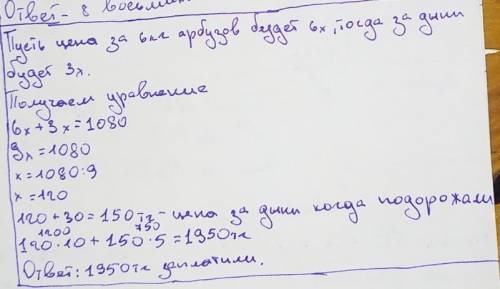 Ответ - 8
Пусть цена за 6кг арбузов будет 6х, тогда за дыни
будет 3х.
Получаем уравнение
6х+3х=1080
9х=1080
х=1080:9
х=120
120+30=150тг - цена за дыни когда подорожали
1200 750
120·10+150·5=1950тг
Ответ: 1950тг заплатили.